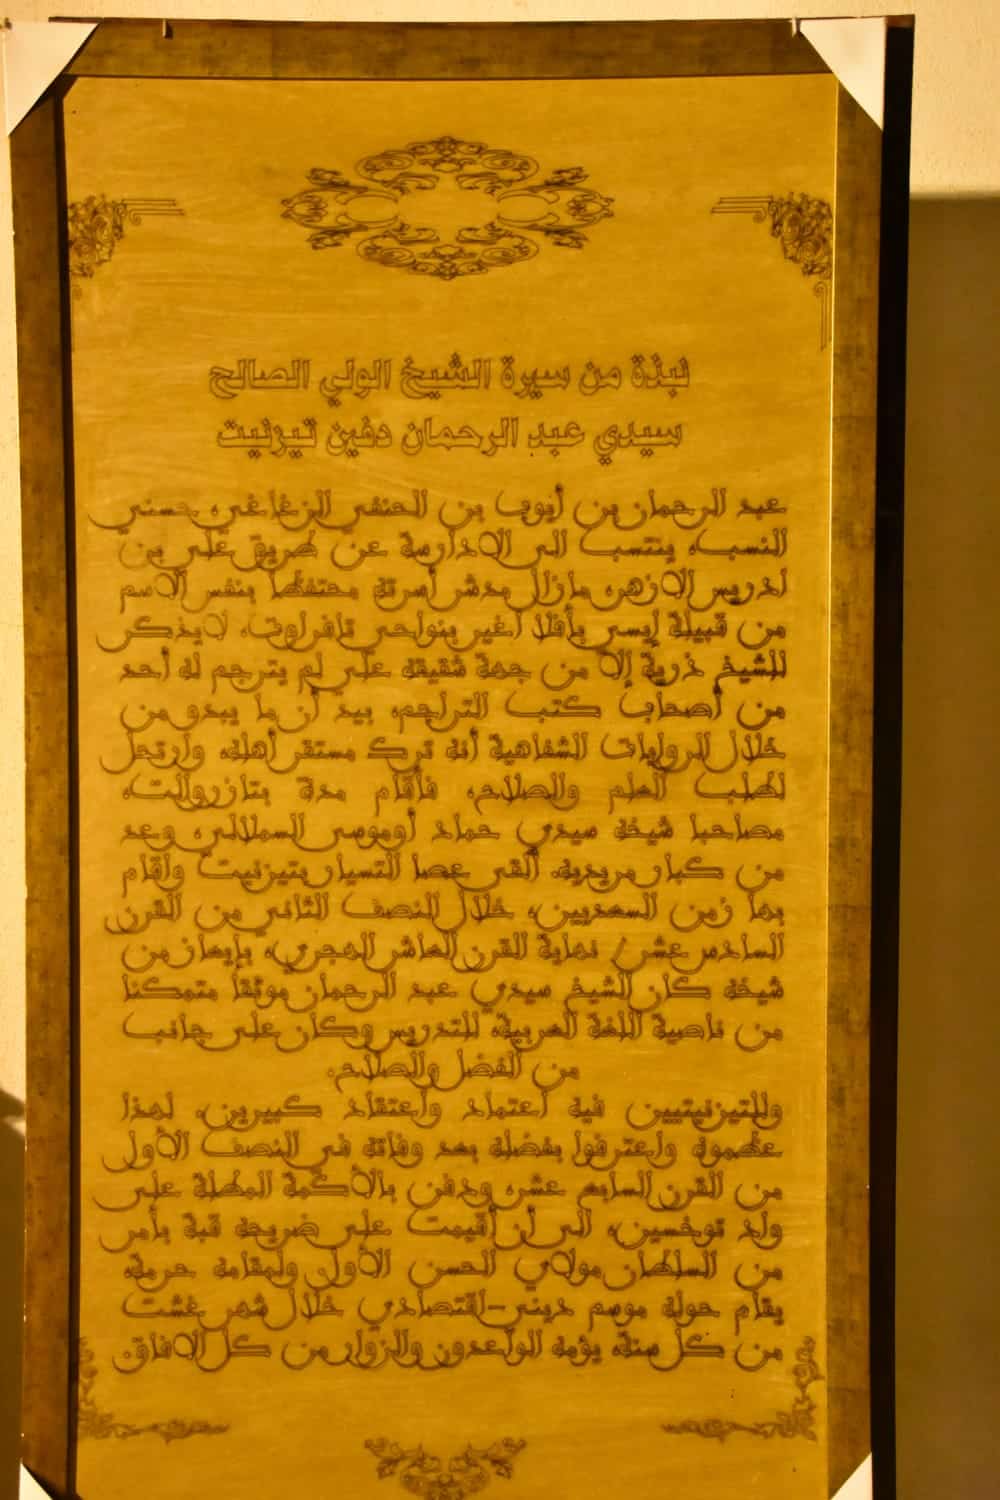 نبذة من سيرة الشيخ الولي الصالح
سيدي عبد الرحمان دفين تيزنيت
عبد الرحمان بن أيوب بن الحنفي الزغاغي، حسني
النسب، ينتسب الى الادارسة عن طريق علي بن
ادريس الازهر، مازال مدشر أسرته محتفظا بنفس الاسم
من قبيلة إيسي بأفلا اغير بنواحي تافراوت، لايذكر
للشيخ ذرية إلا من جهة شقيقه علي لم يترجم له أحد
من أصحاب كتب التراجم، بيد أن ما يبدو من
خلال الروايات الشفاهية أنه ترك مستقر أهله، وارتحل
لطلب العلم والصلاح، فأقام مدة بتازروالت،
مصاحبا شيخه سيدي حماد أوموسى السملالي، وعد
من كبار مريديه. ألقى عصا التسيار بتيزنيت وأقام
بها زمن السعديين، خلال النصف الثاني من القرن
السادس عشر/ نهاية القرن العاشر الهجري، بإيعاز من
شيخه كان الشيخ سيدي عبد الرحمان موثقا متمكنا
من ناصية اللغة العربية، للتدريس وكان على جانب
من الفضل والصلاح.
وللتيزنيتيين فيه اعتماد واعتقاد كبيرين، لهذا
عظموه واعترفوا بفضله بعد وفاته في النصف الأول
من القرن السابع عشر، ودفن بالأكمة المطلة على
واد توخسين، الى أن أقيمت على ضريحه قبة بأمر
من السلطان مولاي الحسن الأول ولمقامه حرمة،
يقام حوله موسم ديني-اقتصادي خلال شهر غشت
من كل سنة، يؤمه الواعدون والزوار من كل الافاق.